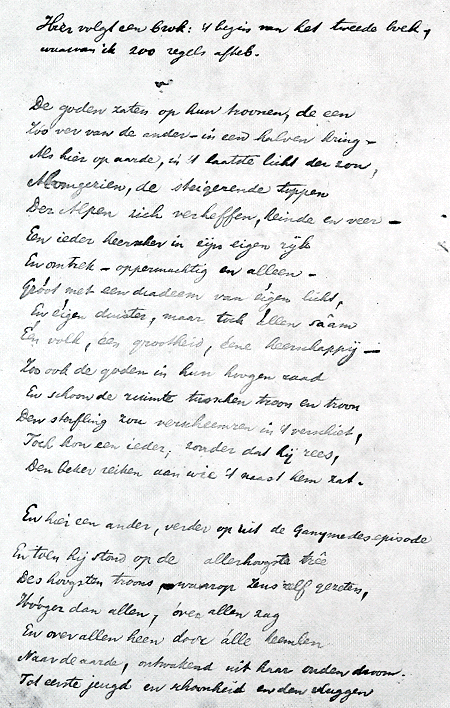 Hier volgt een brok: 't begin van het tweede boek,
waarvan ik 200 regels afheb.
De goden zaten op hun troonen, de een
Zoo ver van de ander – in een halven kring –
Als hier op aarde, in 't laatste licht der zon,
de steigerende toppen
Der Alpen zich verheffen, heinde en veer –
Een ieder heerscher in zijn eigen rijk
En omtrek – oppermachtig en alleen –
Gróót met een diadeem van éigen licht,
En éigen duister, maar toch állen sâam
Eén volk, een grootheid, éene heerschappij –
Zoo ook de goden in hun hoogen raad
En schoon de ruimte tusschen troon en troon
Den sterfling zou verscheemren in 't verschiet,
Toch kon een ieder, zonder dat hij rees,
Den beker reiken aan wie 't naast hem zat.
En hier een ander, verder op uit de Ganymedesepisode
En toen hij stond op de allerhoogste trêe
Des hoogsten troons, waarop Zeus zelf gezeten,
Hóóger dan allen, óver allen zag
En over allen heen door álle heemlen
Naar de aarde, ontwakend uit haar ouden droom.
Tot eerste jeugd en schoonheid en den vluggen